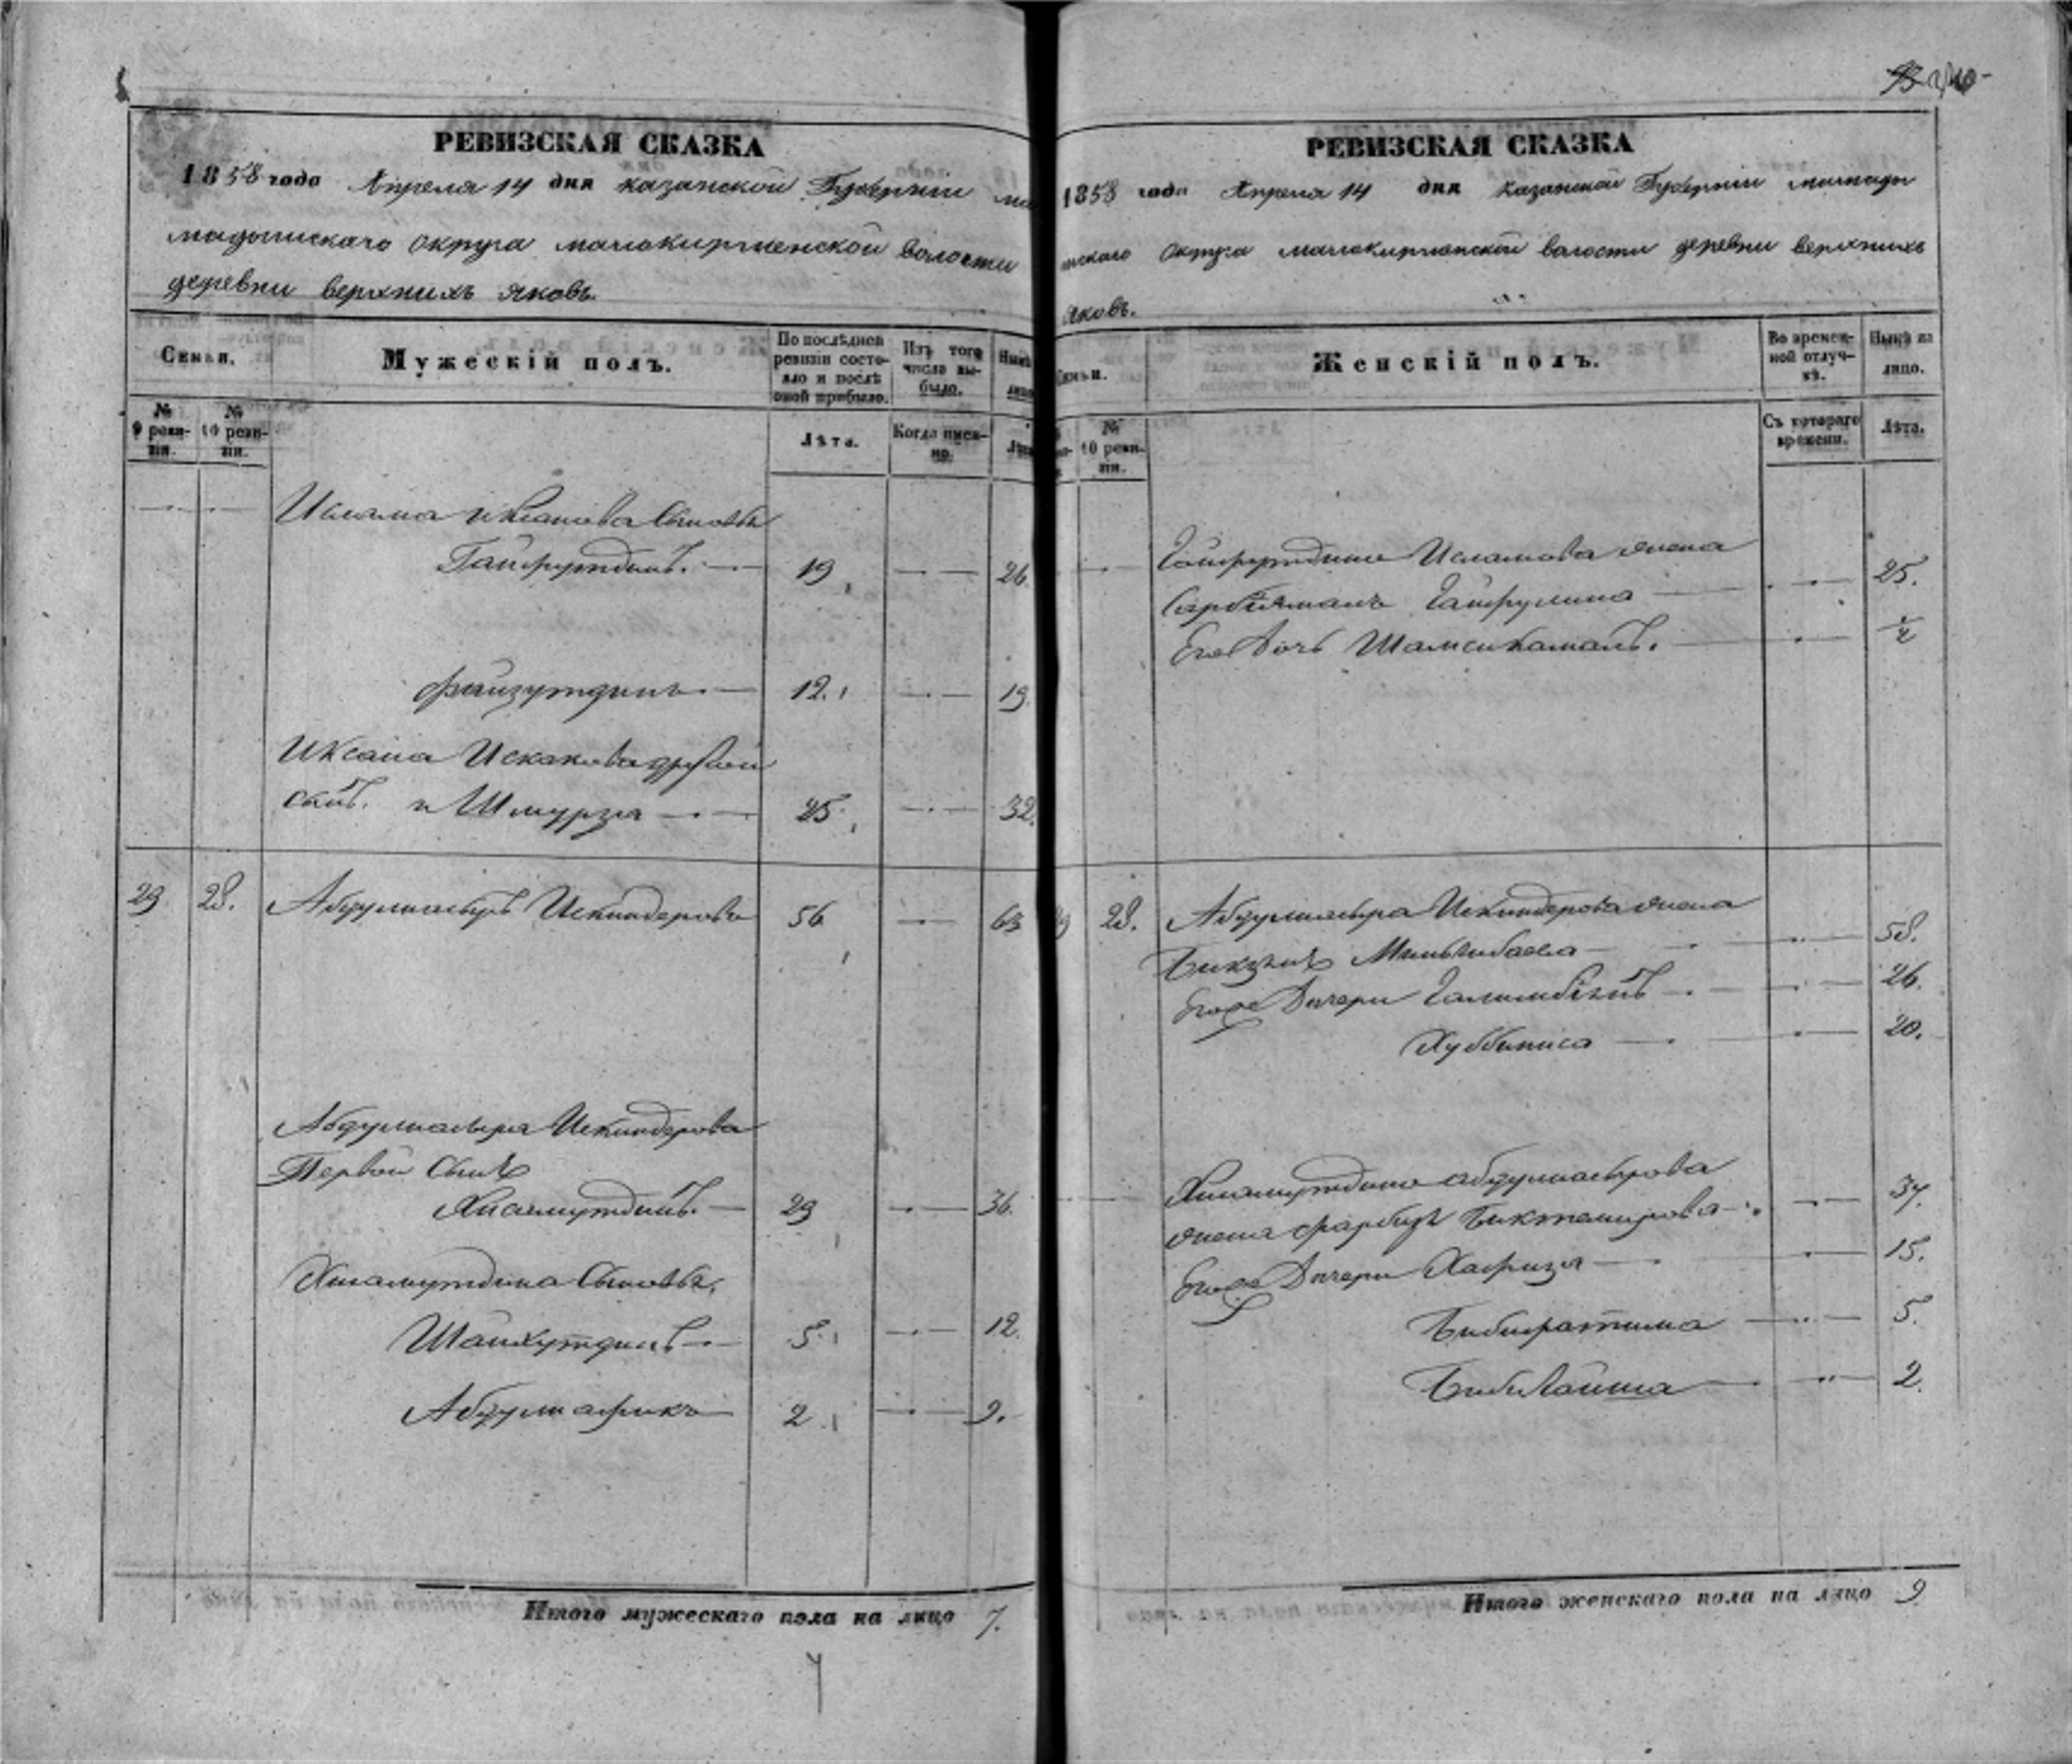 РЕВИЗСКАЯ СКАЗКА
1858 года Апреля 14 дня казанской Губерніи ма
мадышскаго округа малокирменской волости
деревни верхнихъ яковъ.
Семьи.
Мужескій полъ.
По послѣдней ревизіи состояло и послѣ оной прибыло.
Изъ того числа выбыло.
Нынѣ
лицо
№ 9 ревизіи.
№ 10 ревизіи.
Лѣта.
Когда именно.
Лѣта
Исламa Иксанова Сыновья
Гайфутдинъ. 19 26.
Файзутдинъ 12. 19.
Иксана Искакова другой
сынъ. Ишмурза 25. 32.
29. 28. Абдулнасыръ Искиндеровъ 56 63
Абдулнасыра Искиндерова
Первой Сынъ
Хисамутдинъ. 29 36.
Хисамутдина Сыновья.
Шайхутдинъ 5. 12.
Абдулнафикъ 2 9.
Итого мужескаго пола на лицо 7.
РЕВИЗСКАЯ СКАЗКА
1858 года Апреля 14 дня казанской Губерніи мамады
шскаго округа малокирменской волости деревни верхнихъ
яковъ.
Семьи.
Женскій полъ.
Во временной отлучкѣ.
Нынѣ на лицо.
№ 10 ревизіи.
Съ котораго времени.
Лѣта.
Гайфутдина Исламова жена
Гайфулина 25.
Его Дочь Шамсикамалъ. 1/2
28. Абдулнасыра Искиндерова жена
Минлибаева 58.
Его Дочери 26.
Хуббиниса 20.
Хисамутдина абдулнасырова
жена Биктемирова 37.
Его Дочери Хафиза 15.
Бибифатима 5.
Бибигайша 2.
Итого женскаго пола на лицо 9